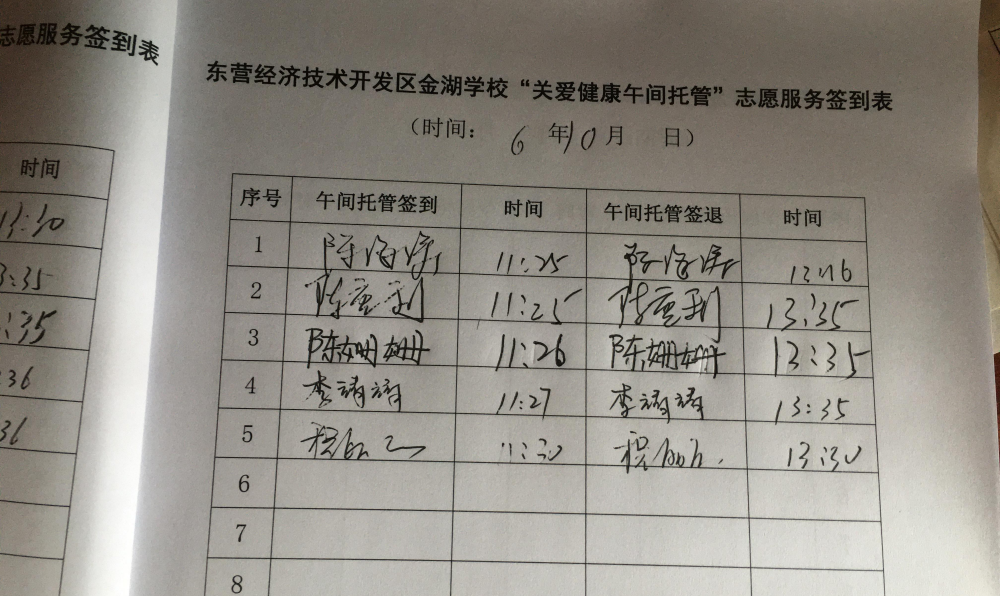 志愿服务签到表
时间
11:30
3:35
:35
:36
36
东营经济技术开发区金湖学校“关爱健康午间托管”志愿服务签到表
（时间： 6 年10月 日）
序号 午间托管签到 时间 午间托管签退 时间
1 陈海涛 11:25 陈海涛
2 11:25 13:35
3 陈姗姗 11:26 陈姗姗 13:35
4 李靖靖 11:27 李靖靖 13:35
5 程 11:30 程 13:30
6
7
8